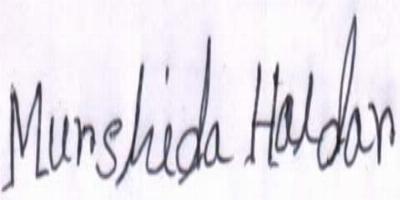 Murshida Haldar